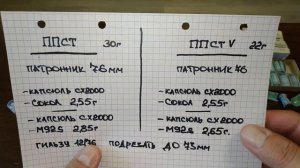 ППСТ 30г
ПАТРОННИК 76мм
- КАПСЮЛЬ СХ2000
- СОКОЛ 2,55г
- КАПСЮЛЬ СХ2000
- M92S 2,85г
ППСТ V 22г
ПАТРОННИК 76
- КАПСЮЛЬ СХ2000
- СОКОЛ 2,55г.
- КАПСЮЛЬ СХ2000
- M92S 2,65г.
ГИЛЬЗУ 12/76 ПОДРЕЗАТЬ ДО 73мм